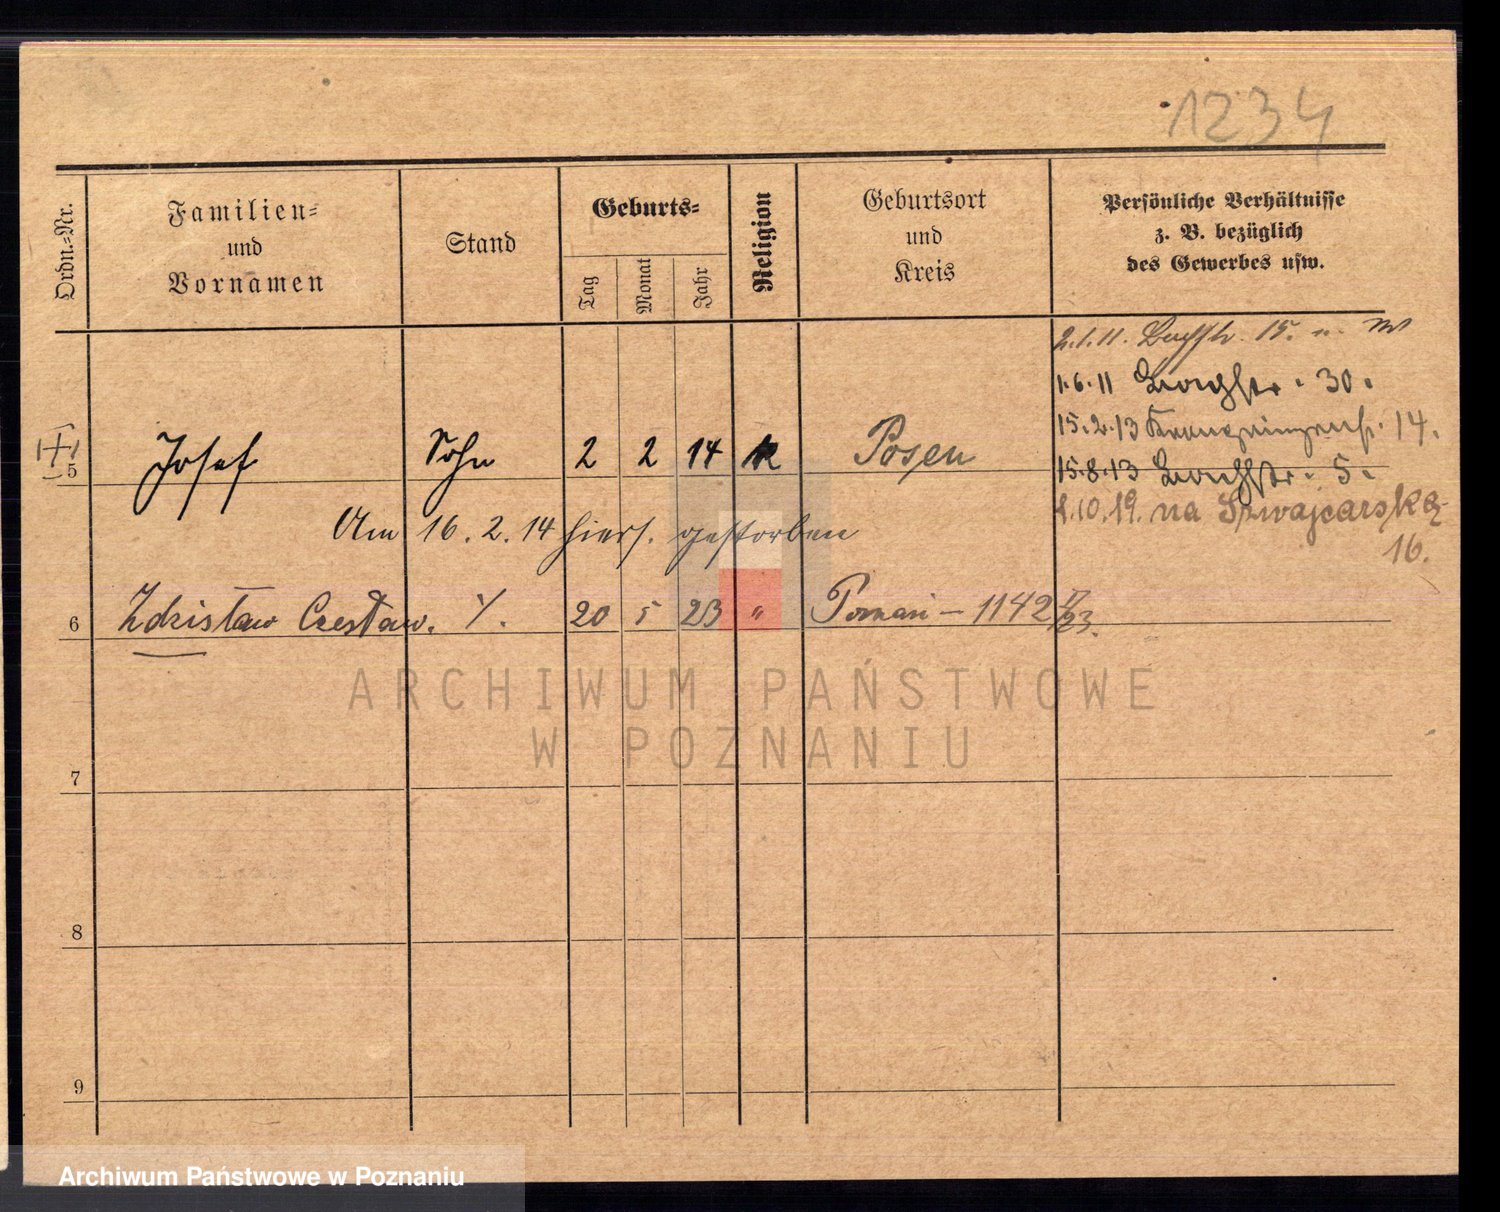 1234
Ordn.-Nr.
Familien-
und
Vornamen
Stand
Geburts-
Tag
Monat
Jahr
Religion
Geburtsort
und
Kreis
Persönliche Verhältnisse
z. B. bezüglich
des Gewerbes usw.
2.1.11. 15.
1.6.11 Bachstr. 30.
15.2.13 Kronprinzenstr. 14.
5 Josef Sohn 2 2 14 k Posen
15.8.13 Bachstr. 5.
1.10.19. na Szwajcarską
16.
Am 16.2.14 hiers. gestorben
6 Zdzisław Czesław. ·/. 20 5 23 " Poznań - 1142 V/23.
7
8
9
ARCHIWUM PAŃSTWOWE
W POZNANIU
Archiwum Państwowe w Poznaniu